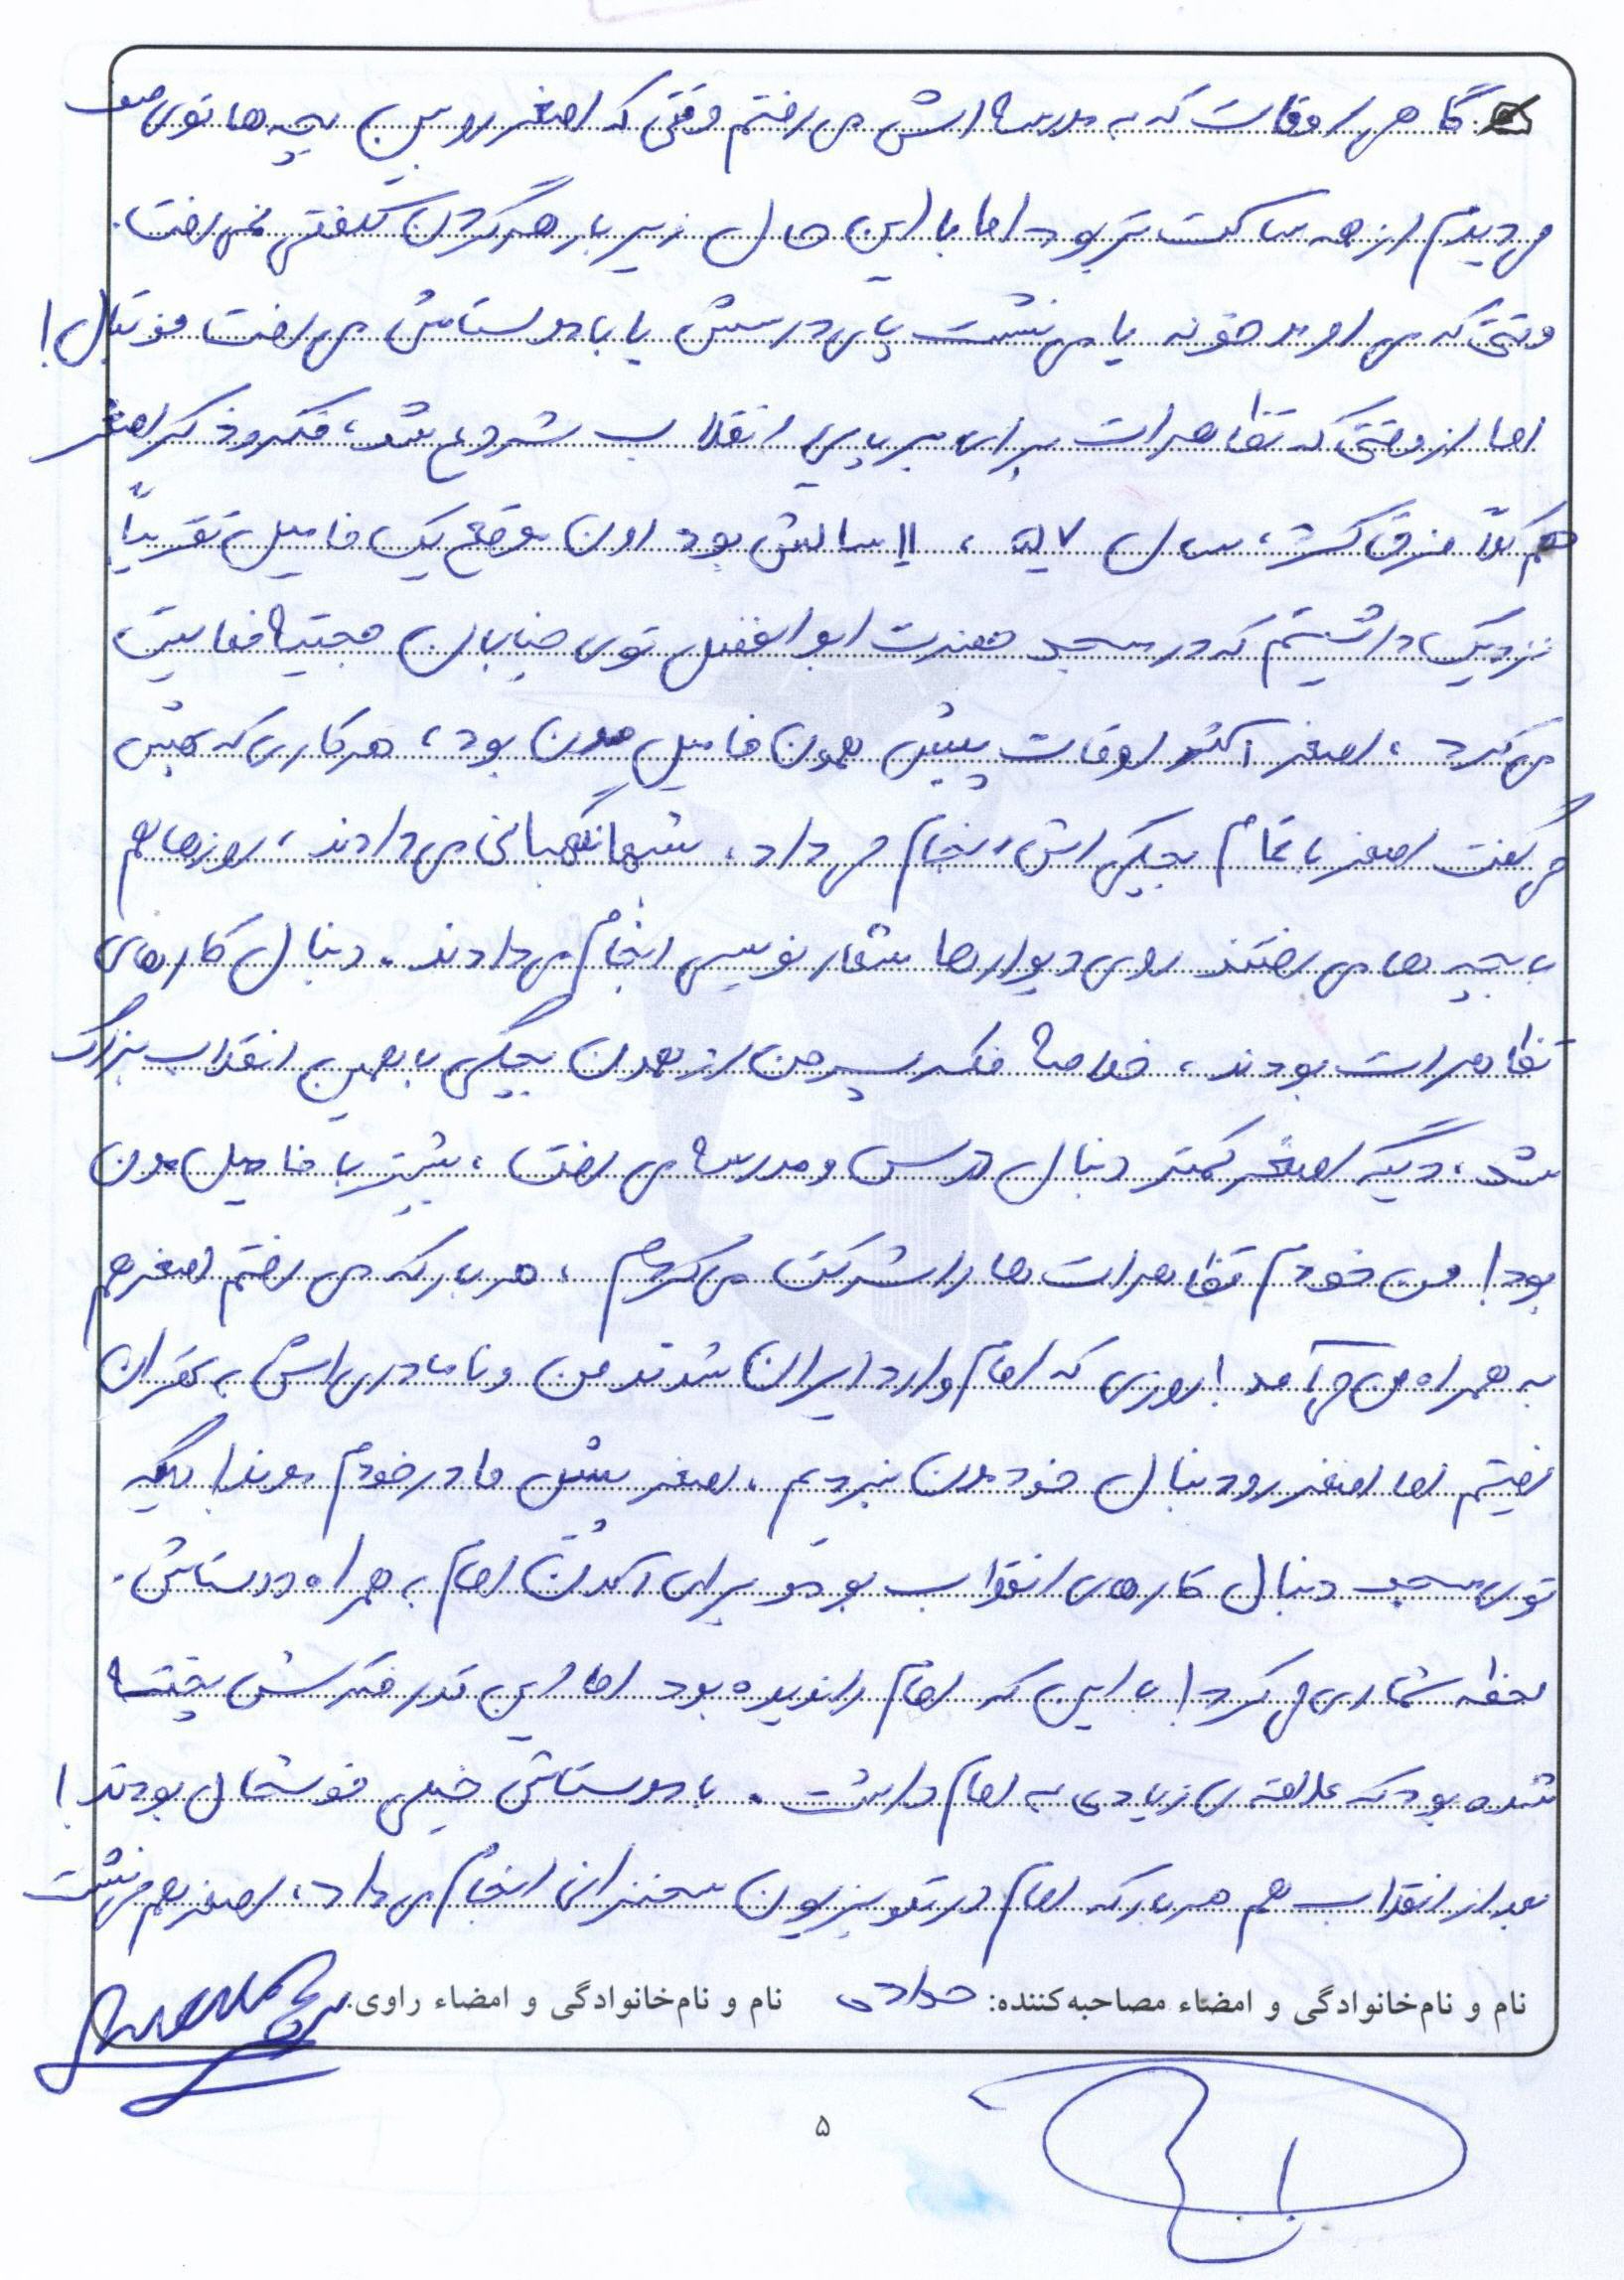 گاهی اوقات که به مدرسه اش می رفتم وقتی که اصغر رو بین بچه ها توی صف
می دیدم از همه ساکت تر بود اما با این حال زیر بار هر گردن کلفتی نمی رفت.
وقتی که می اومد خونه یا می نشست پای درسش یا با دوستاش می رفت فوتبال!
اما از وقتی که تظاهرات برای برپایی انقلاب شروع شد، فکر و ذکر اصغر
هم کلاً فرق کرد، سال ۵۷، ۱۱ سالش بود اون موقع یک فامیل تقریباً
نزدیک داشتیم که در مسجد حضرت ابوالفضل توی خیابان مجتبه فعالیت
می کرد، اصغر اکثر اوقات پیش همون فامیل مون بود، هر کاری که بهش
می گفت اصغر با تمام بچگی اش انجام می داد، شبها نگهبانی می دادند، روزها هم
با بچه ها می رفتند روی دیوارها شعار نویسی انجام می دادند. دنبال کارهای
تظاهرات بودند، خلاصه فکر پسر من از همون بچگی با همین انقلاب بزرگ
شد، دیگه اصغر کمتر دنبال درس و مدرسه می رفت، بیشتر با فامیل مون
بود! من خودم تظاهرات ها را شرکت می کردم، هر بار که می رفتم اصغر هم
به همراه من می آمد! روزی که امام وارد ایران شدند من و نامادری اش به تهران
رفتیم اما اصغر رو دنبال خودمون نبردیم، اصغر پیش مادر خودم موند! دیگه
توی مسجد دنبال کارهای انقلاب بود و برای آمدن امام به همراه دوستاش.
لحظه شماری می کرد! با این که امام را ندیده بود اما این قدر فکرش پخته
شده بود که علاقه ی زیادی به امام داشت. با دوستاش خیلی خوشحال بودند!
بعد از انقلاب هم هر بار که امام در تلویزیون سخنرانی انجام می داد، اصغر هم می نشست
نام و نام‌خانوادگی و امضاء مصاحبه‌کننده: نام و نام‌خانوادگی و امضاء راوی:
۵